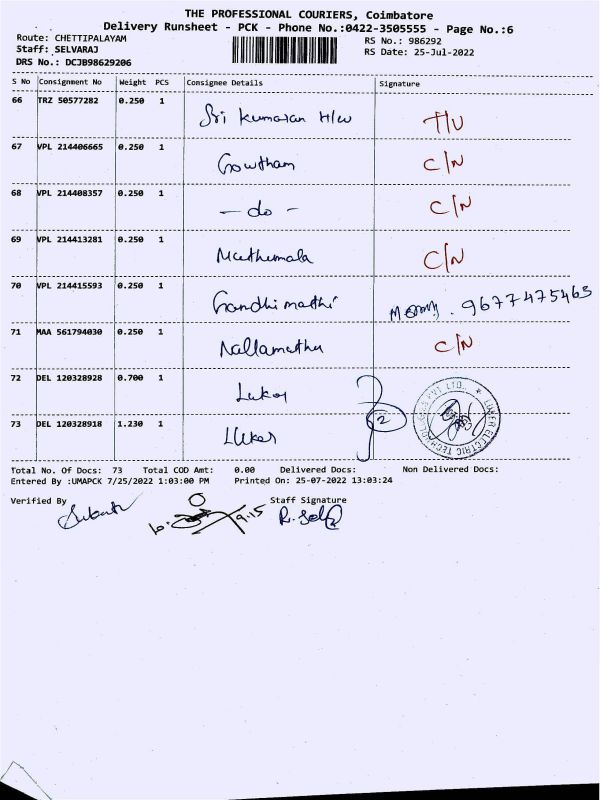 THE PROFESSIONAL COURIERS, Coimbatore
Delivery Runsheet - PCK - Phone No.:0422-3505555 - Page No.:6
Route: CHETTIPALAYAM RS No.: 986292
Staff: SELVARAJ RS Date: 25-Jul-2022
DRS No.: DCJB98629206
S No Consignment No Weight PCS Consignee Details Signature
66 TRZ 50577282 0.250 1 Sri Kumaran H/W T/U
67 VPL 214406665 0.250 1 Gowtham C/N
68 VPL 214408357 0.250 1 - do - C/N
69 VPL 214413281 0.250 1 Muthumala C/N
70 VPL 214415593 0.250 1 Gandhimathi 9677475463
71 MAA 561794030 0.250 1 Nallamuthu C/N
72 DEL 120328928 0.700 1 Luker
73 DEL 120328918 1.230 1 Luker 2
LUKER ELECTRIC TECHNOLOGIES PVT LTD.,
Total No. Of Docs: 73 Total COD Amt: 0.00 Delivered Docs: Non Delivered Docs:
Entered By :UMAPCK 7/25/2022 1:03:00 PM Printed On: 25-07-2022 13:03:24
Verified By Staff Signature
9.15